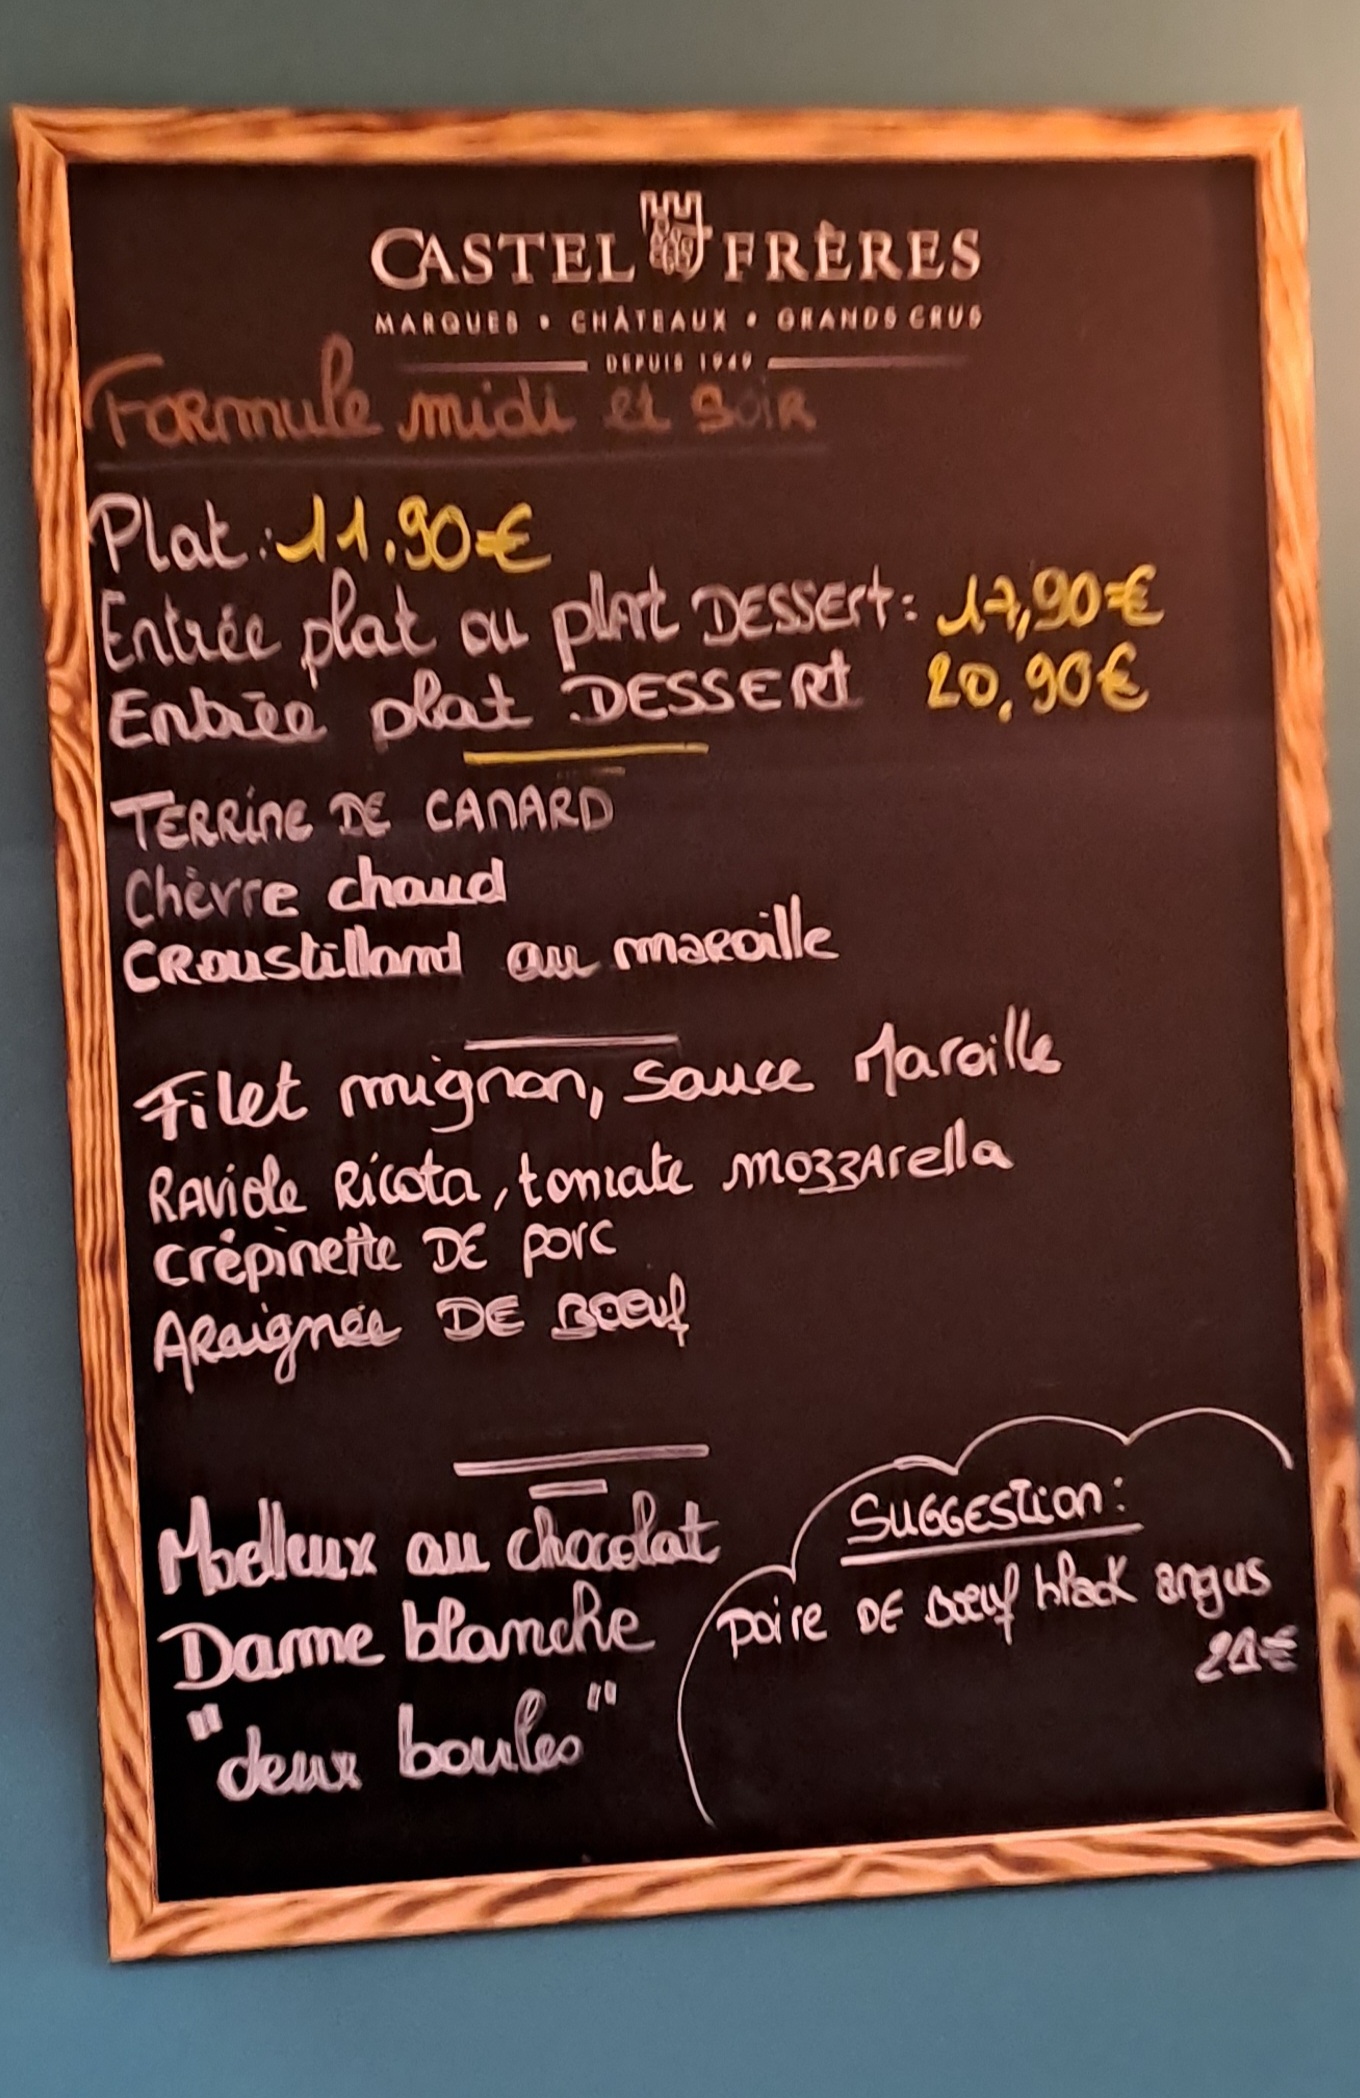 CASTEL FRÈRES
MARQUES • CHÂTEAUX • GRANDS CRUS
DEPUIS 1949
Formule midi et soir
Plat : 11.90€
Entrée plat ou plat DESSERT : 17,90€
Entrée plat DESSERT 20,90€
TERRINE DE CANARD
Chèvre chaud
CROUSTILLAND au maroille
Filet mignon, sauce Maroille
RAViole Ricota, tomate mozzArella
crépinette DE porc
ARaignée DE BOEuf
Moelleux au chocolat
Dame blanche
"deux boules"
SUGGESTION :
poire DE BOEuf black angus
21€